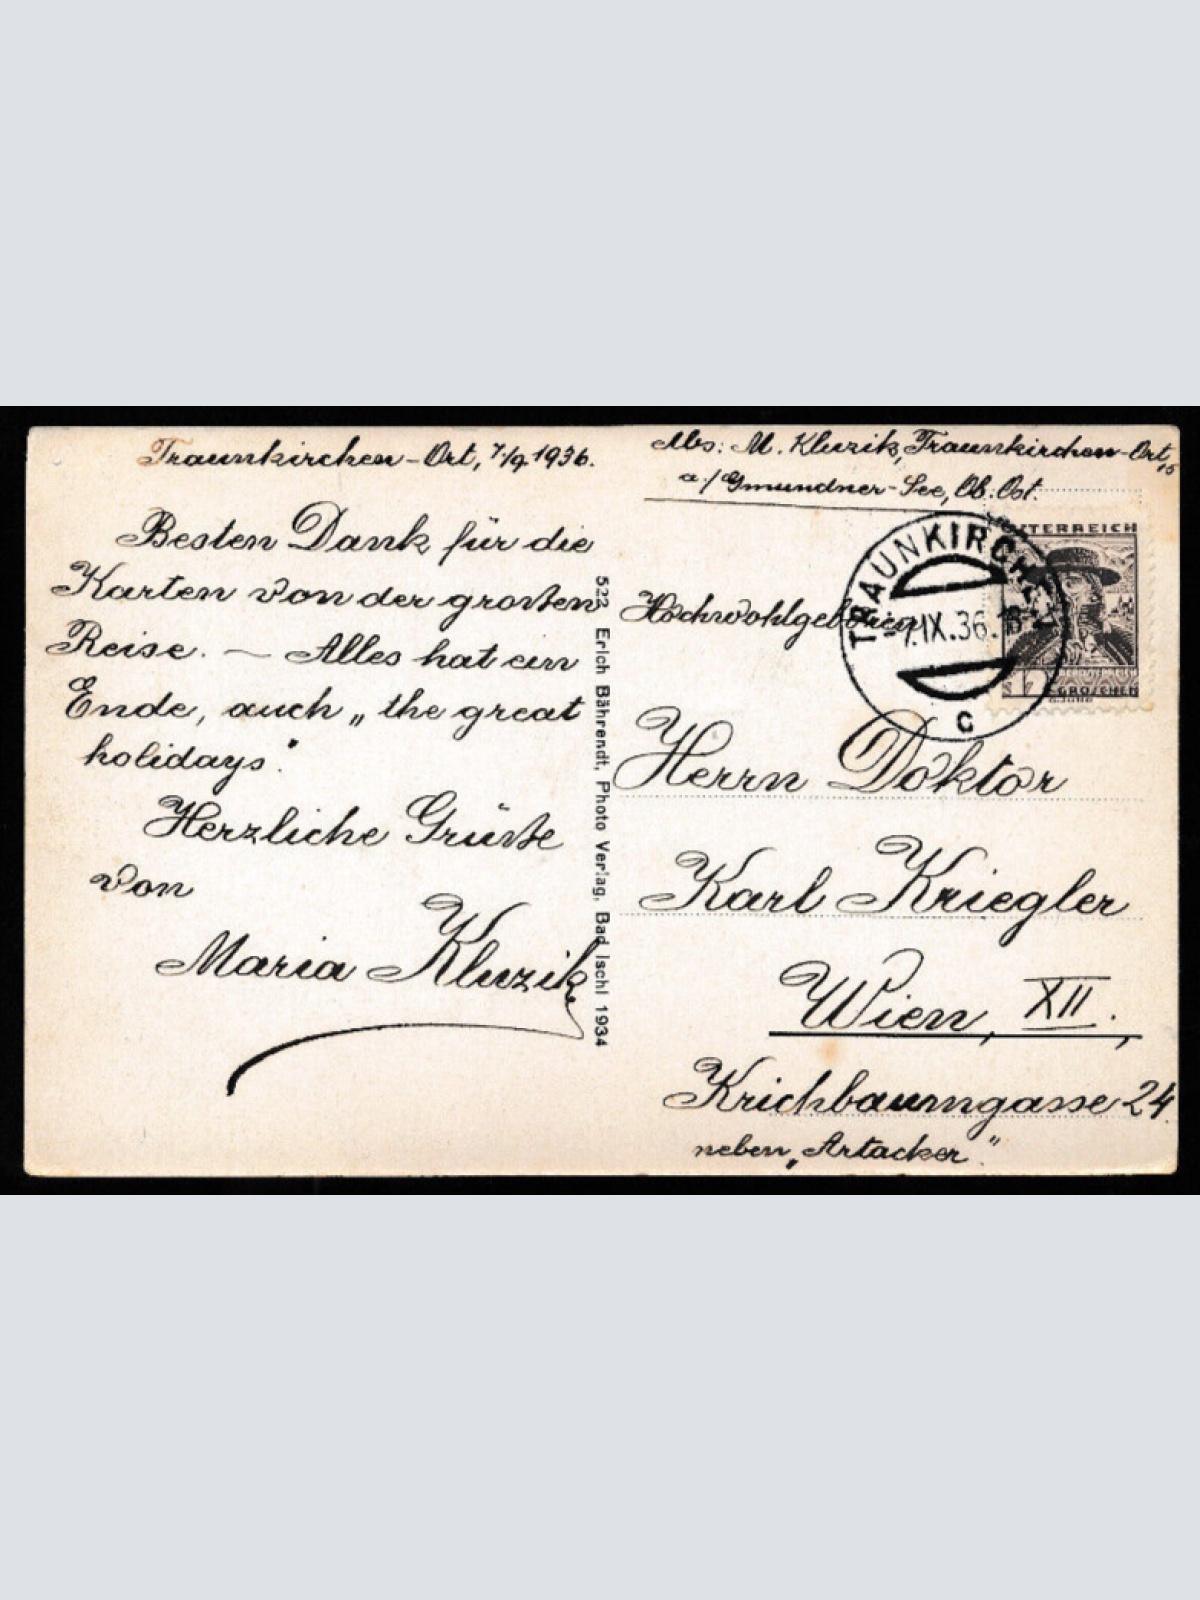 Traunkirchen-Ort, 7/9. 1936.
Besten Dank für die
Karten von der großen
Reise. — Alles hat ein
Ende, auch „the great
holidays".
Herzliche Grüße
von
Maria Kluzik
522 Erich Bährendt, Photo Verlag, Bad Ischl 1934
Abs: M. Kluzik, Traunkirchen-Ort, 15
a./Gmundner-See, Ob. Öst.
ÖSTERREICH
TRAUNKIRCHEN
-7.IX.36.18
c
GROSCHEN
Hochwohlgeboren
Herrn Doktor
Karl Kriegler
Wien, XII.,
Krichbaumgasse 24.
neben „Artacker."